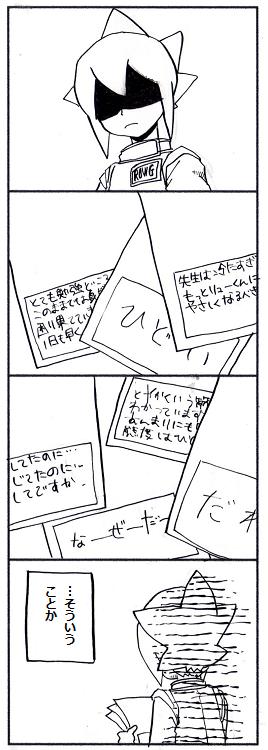 RAWG
先生は冷たすぎ
もっとリューくんに
やさしくなるべき
ひどい
とても勉強どころ
このままでは真
困り果ててい
1日も早く
とかいう
わかっています
あんまりにも
態度はひど
だれ
してたのに…
じてたのに…
してですか。
なーぜーだー
…そういう
ことか